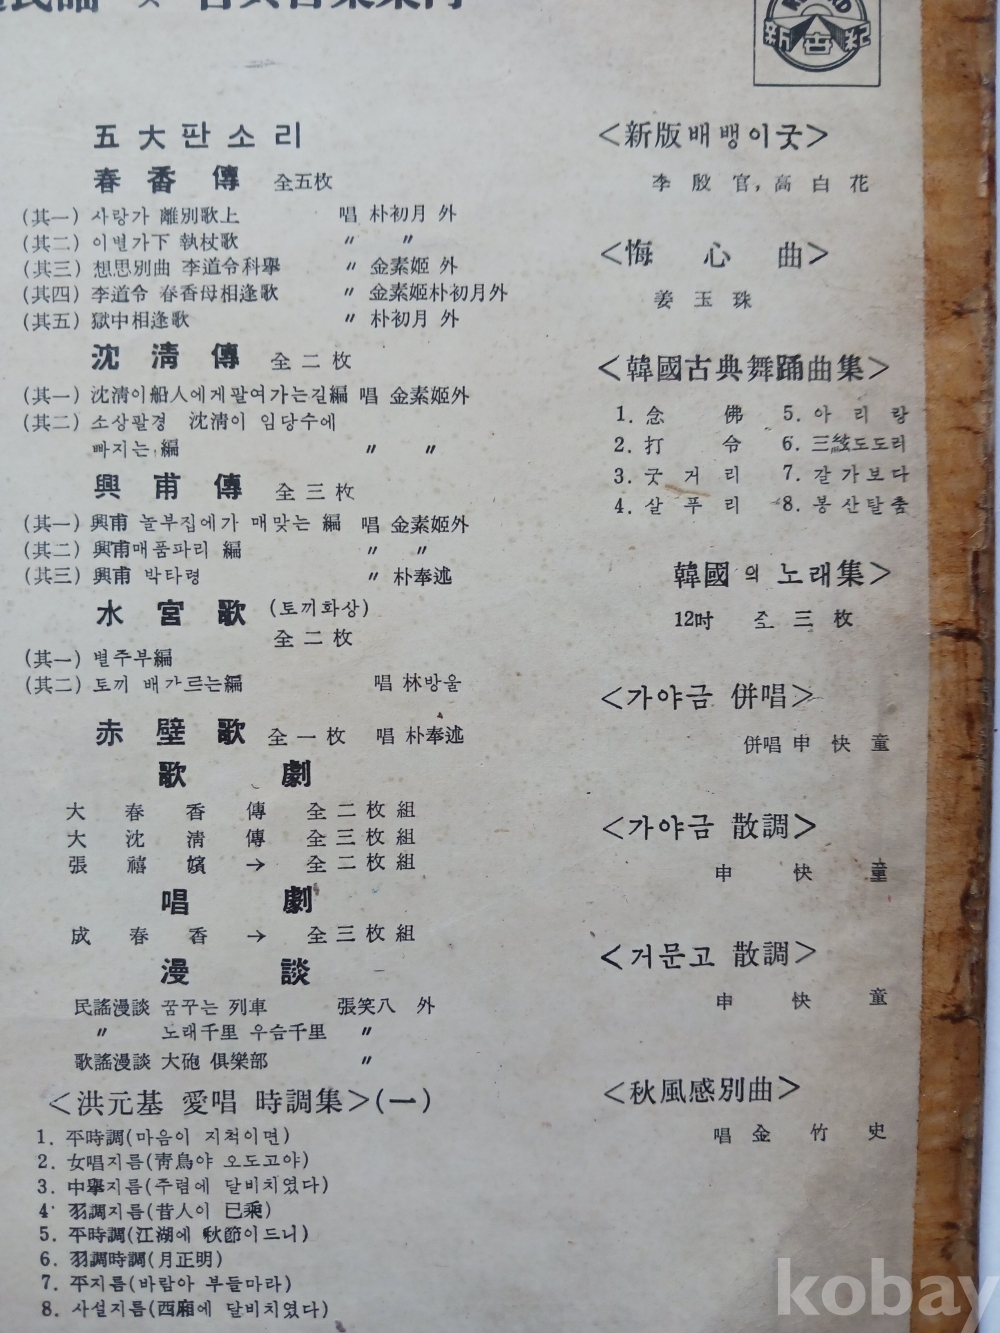 新世紀
五大판소리
春香傳 全五枚
(其一) 사랑가 離別歌上 唱 朴初月 外
(其二) 이별가下 執杖歌 〃 〃
(其三) 想思別曲 李道令科擧 〃 金素姬 外
(其四) 李道令 春香母相逢歌 〃 金素姬朴初月外
(其五) 獄中相逢歌 〃 朴初月 外
沈淸傳 全二枚
(其一) 沈淸이船人에게팔여가는길編 唱 金素姬外
(其二) 소상팔경 沈淸이 임당수에
빠지는 編 〃 〃
興甫傳 全三枚
(其一) 興甫 놀부집에가 매맞는 編 唱 金素姬外
(其二) 興甫매품파리 編 〃 〃
(其三) 興甫 박타령 〃 朴奉述
水宮歌 (토끼화상)
全二枚
(其一) 별주부編
(其二) 토끼 배가르는編 唱 林방울
赤壁歌 全一枚 唱 朴奉述
歌劇
大春香傳 全二枚組
大沈淸傳 全三枚組
張禧嬪 → 全二枚組
唱劇
成春香 → 全三枚組
漫談
民謠漫談 꿈꾸는 列車 張笑八 外
〃 노래千里 우슴千里 〃
歌謠漫談 大砲 俱樂部 〃
<洪元基 愛唱 時調集>(一)
1. 平時調(마음이 지척이면)
2. 女唱지름(靑鳥야 오도고야)
3. 中擧지름(주렴에 달비치였다)
4. 羽調지름(昔人이 已乘)
5. 平時調(江湖에 秋節이드니)
6. 羽調時調(月正明)
7. 平지름(바람아 부들마라)
8. 사설지름(西廂에 달비치였다)
<新版배뱅이굿>
李殷官, 高白花
<悔心曲>
姜玉珠
<韓國古典舞踊曲集>
1. 念佛 5. 아리랑
2. 打令 6. 三絃도도리
3. 굿거리 7. 갈가보다
4. 살푸리 8. 봉산탈춤
韓國의 노래集>
12吋 全三枚
<가야금 併唱>
併唱 申快童
<가야금 散調>
申快童
<거문고 散調>
申快童
<秋風感別曲>
唱 金竹史
kobay